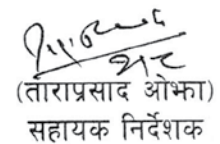 (ताराप्रसाद ओझा)
सहायक निर्देशक